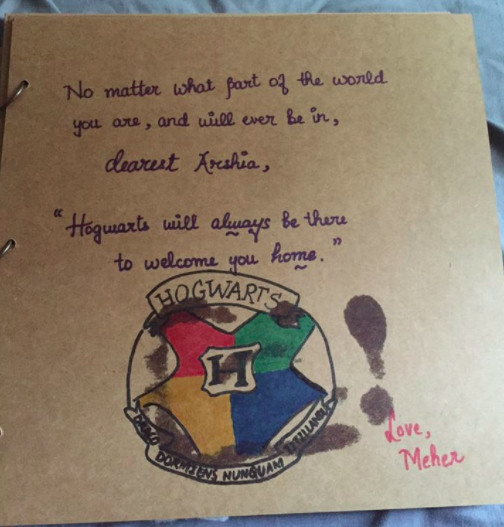 No matter what part of the world
you are, and will ever be in,
dearest Arshia,
"Hogwarts will always be there
to welcome you home."
HOGWARTS
H
DRACO DORMIENS NUNQUAM TITILLANDUS
Love,
Meher